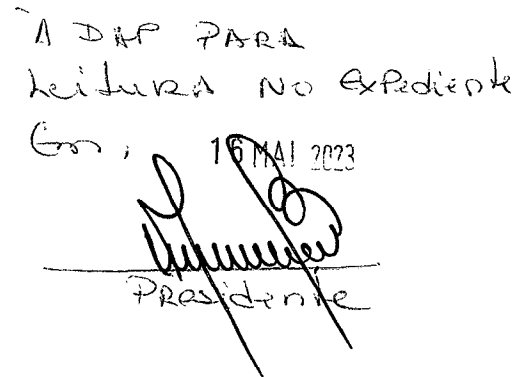 À DAP PARA
Leitura no Expediente
Em, 16 MAI 2023
Presidente